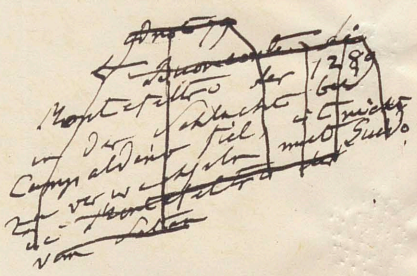 Buonconte di
Montefeltro der 1289
in der Schlacht bei
Campaldino fiel, ist nicht
zu verwechseln mit Guido
de Montefeltro der
von